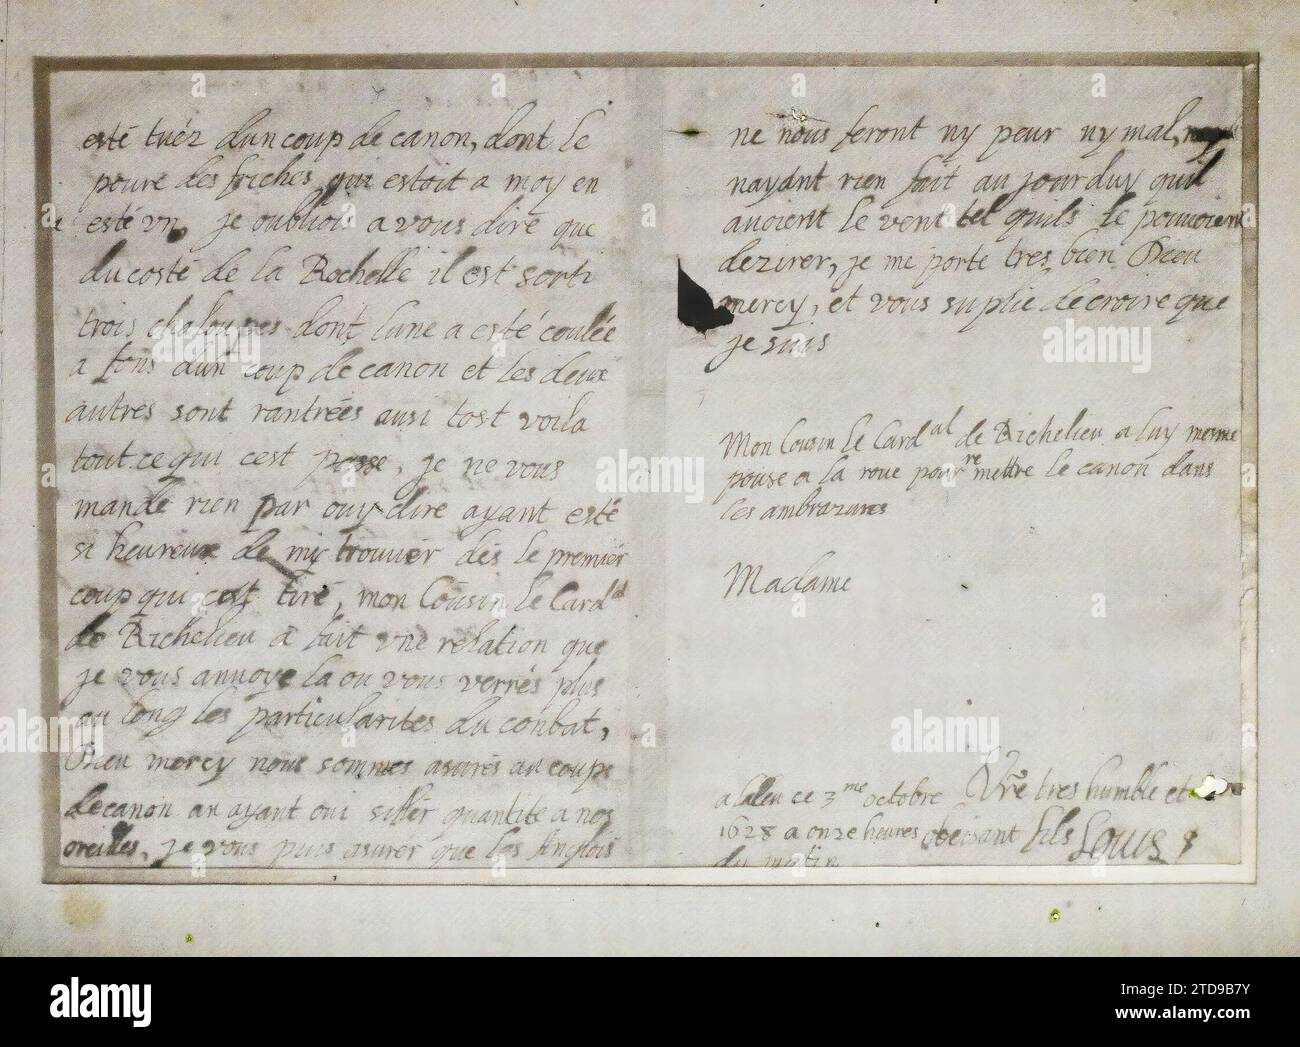 esté tuéz dun coup de canon, dont le
poure des friches qui estoit a moy en
esté vn, je oubliois a vous dire que
du costé de la Rochelle il est sorti
trois chaloupes dont lune a esté coulée
a fons dun coup de canon et les deux
autres sont rantrées ausi tost voila
tout ce qui cest passe, je ne vous
mande rien par ouy dire ayant esté
si heureux de my trouver dés le premier
coup qui cest tiré, mon Cousin le Card^al
de Richelieu a fait vne relation que
je vous anvoye la ou vous verrés plus
au long les particularites du conbat,
Dieu mercy nous sommes asurés au coups
de canon an ayant oui sifler quantite a nos
oreilles, je vous puis asurer que les Anglois
ne nous feront ny peur ny mal,
nayant rien fait au jourduy quil
avoient le vent tel quils le pouvoient
dezirer, je me porte tres bien Dieu
mercy, et vous suplie de croire que
je suis
Mon Cousin le Card^al de Richelieu a luy mesme
pouse a la roue pour remettre le canon dans
les ambrazures
Madame
Vre tres humble et
a laleu ce 3^me octobre
1628 a onze heures obeisant fils Louis
du matin
alamy
Image ID: 2TD9B7Y
www.alamy.com